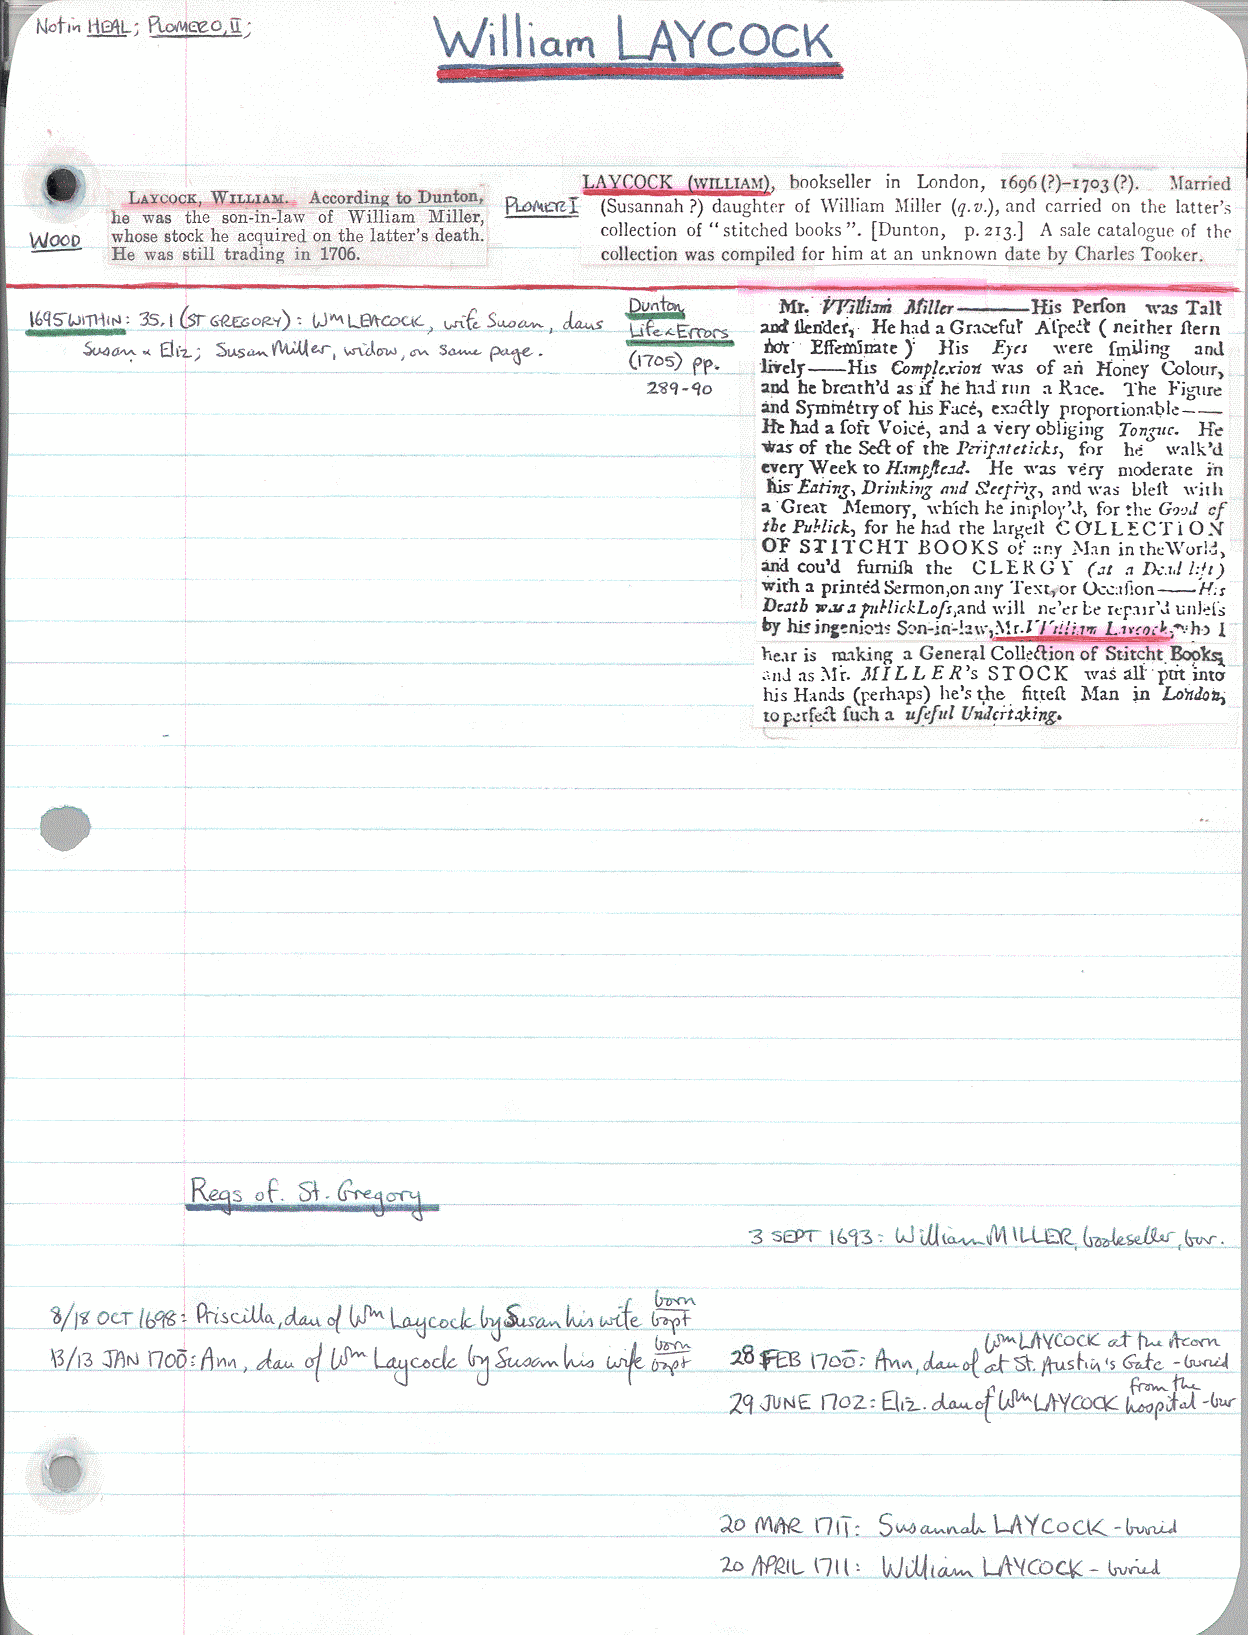 Not in HEAL; PLOMER O, II;
William LAYCOCK
WOOD
LAYCOCK, WILLIAM. According to Dunton,
he was the son-in-law of William Miller,
whose stock he acquired on the latter's death.
He was still trading in 1706.
PLOMER I
LAYCOCK (WILLIAM), bookseller in London, 1696(?)–1703(?). Married
(Susannah ?) daughter of William Miller (q.v.), and carried on the latter's
collection of "stitched books". [Dunton, p. 213.] A sale catalogue of the
collection was compiled for him at an unknown date by Charles Tooker.
1695 WITHIN: 35.1 (ST GREGORY): Wm LEACOCK, wife Susan, daus
Susan & Eliz; Susan Miller, widow, on same page.
Dunton
Life & Errors
(1705) pp.
289-90
Mr. William Miller——His Perſon was Tall
and ſlender, He had a Graceful Aſpect (neither ſtern
nor Effeminate) His Eyes were ſmiling and
lively——His Complexion was of an Honey Colour,
and he breath'd as if he had run a Race. The Figure
and Symmetry of his Face, exactly proportionable——
He had a ſoft Voice, and a very obliging Tongue. He
was of the Sect of the Peripateticks, for he walk'd
every Week to Hampſtead. He was very moderate in
his Eating, Drinking and Sleeping, and was bleſt with
a Great Memory, which he imploy'd, for the Good of
the Publick, for he had the largeſt COLLECTION
OF STITCHT BOOKS of any Man in the World,
and cou'd furniſh the CLERGY (at a Dead lift)
with a printed Sermon, on any Text, or Occaſion——His
Death was a publick Loſs, and will ne'er be repair'd unleſs
by his ingenious Son-in-law, Mr. William Laycock, who I
hear is making a General Collection of Stitcht Books,
and as Mr. MILLER's STOCK was all put into
his Hands (perhaps) he's the fitteſt Man in London,
to perfect ſuch a uſeful Undertaking.
Regs of St. Gregory
3 SEPT 1693: William MILLER, bookseller, bur.
8/18 OCT 1698: Priscilla, dau of Wm Laycock by Susan his wife born bapt
13/13 JAN 1700: Ann, dau of Wm Laycock by Susan his wife born bapt
28 FEB 1700: Ann, dau of Wm LAYCOCK at the Acorn at St. Austin's Gate - buried
29 JUNE 1702: Eliz. dau of Wm LAYCOCK from the hospital - bur
20 MAR 1711: Susannah LAYCOCK - buried
20 APRIL 1711: William LAYCOCK - buried